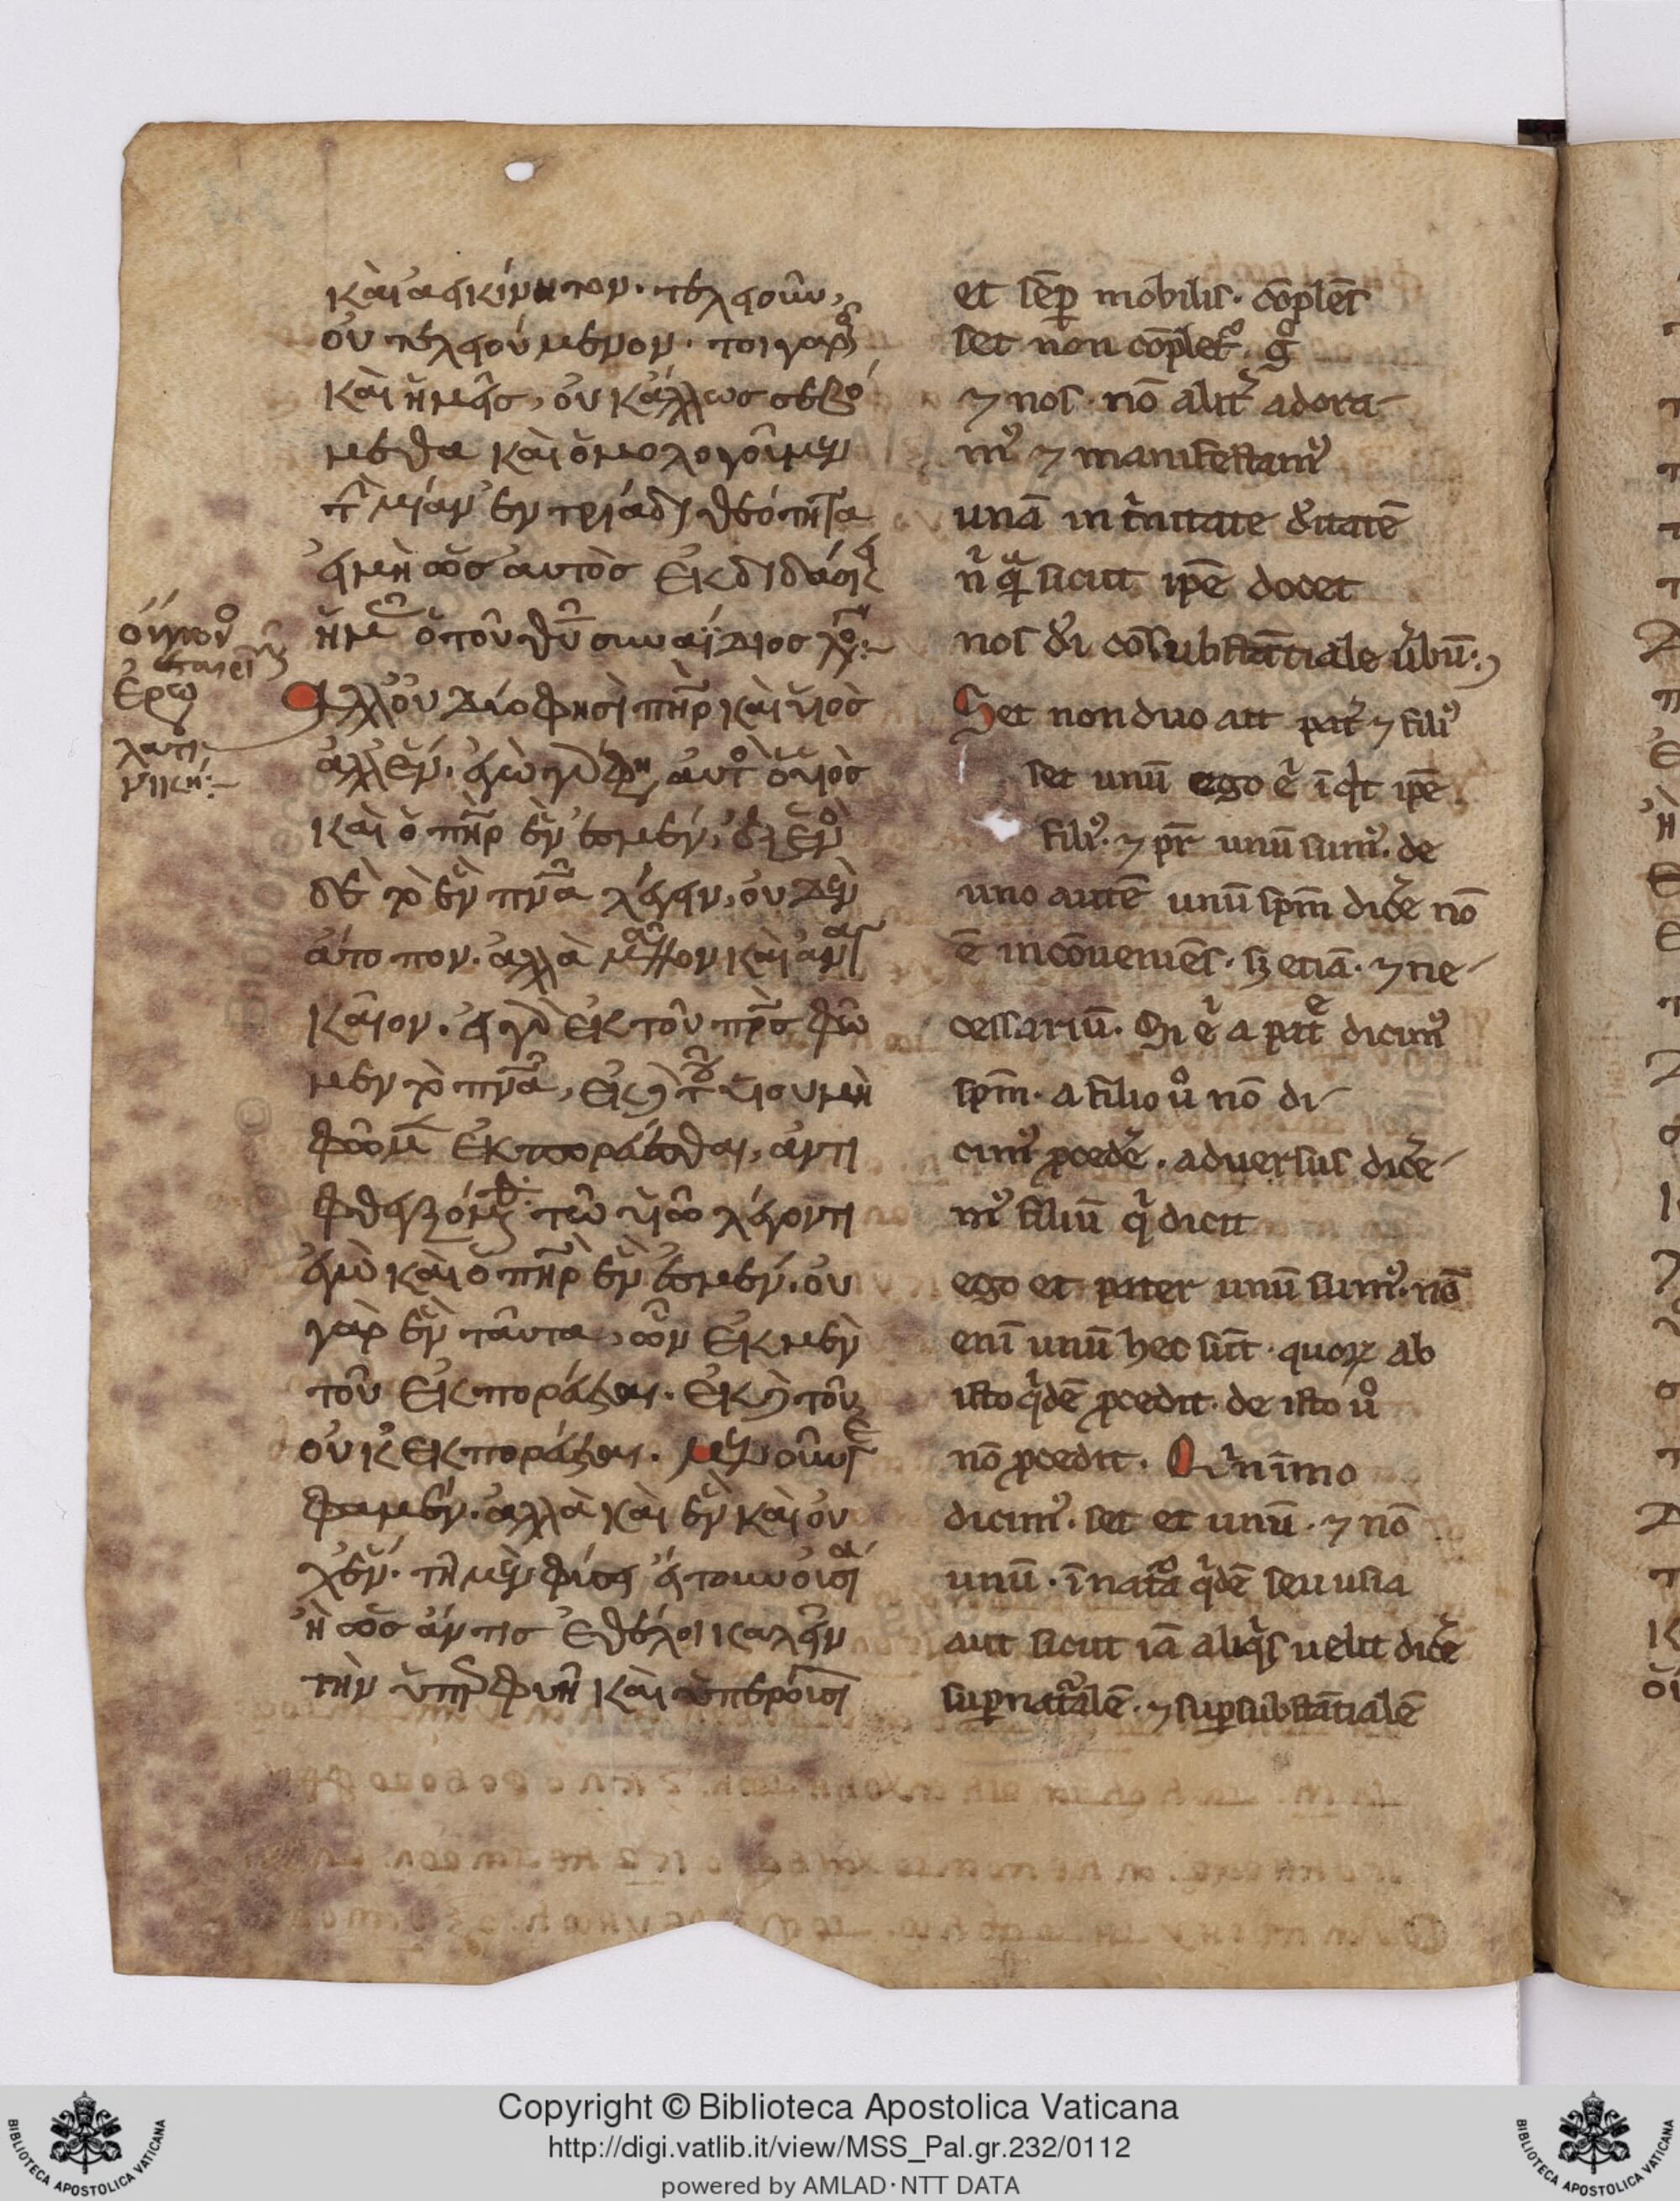 καὶ ἀεικίνητον. τελειοῦν,
οὐ τελειούμενον. τοιγαρ
καὶ ἡμεῖς, οὐκ ἄλλως σεβό
μεθα καὶ ὁμολογοῦμεν
τὴν μίαν ἐν τριάδι θεότητα
εἰ μὴ ὡς αὐτὸς ἐκδιδάσκει
ἡμᾶς ὁ τοῦ θυ συναΐδιος λόγος:
ἐρω
λατι
νική:
Αλλ οὐ δύο φησὶ πηρ καὶ υἱὸς
ἀλλ ἕν. ἐγὼ γὰρ φη αὐτὸς ὁ υἱὸς
καὶ ὁ πηρ ἕν ἐσμεν, ἐξ ἑνὸς
δὲ τὸ ἓν πνα λέγειν, οὐδὲν
ἄτοπον. ἀλλὰ μᾶλλον καὶ ἀναγ
καῖον. εἰ γὰρ ἐκ τοῦ πρς φῶ
μεν τὸ πνα, ἐκ δὲ τοῦ υἱοῦ μὴ
φῶμεν ἐκπορεύεσθαι, ἀντι
φθεγξόμεθα τῶ υἱῶ λέγοντι
ἐγὼ καὶ ὁ πηρ ἕν ἐσμεν. οὐ
γὰρ ἓν ταῦτα, ὧν ἐκ μὲν
τοῦ ἐκπορεύεται. ἐκ δὲ τοῦ
οὐκ ἐκπορεύεται. μενοῦνγε
φαμεν. ἀλλὰ καὶ ἓν καὶ οὐ
χ ἕν. τῆ μὲν φύσει εἴτουν οὐσία
ἢ ὡς ἄν τις ἐθέλοι καλεῖν
τὴν ὑπὲρ φυῆ καὶ ὑπερούσι
et sep mobilis. coples
set non coplet. g
⁊ nos. no alit adora-
m ⁊ manifestam
una in trinitate ditate
n q sicut ipe docet
nos di consubstatiale vbu:
Set non duo ait pat ⁊ fili
set unu ego e iqt ipe
fili. ⁊ pr unu sum. de
uno aute unu spm dice no
e incovenies. sz etia. ⁊ ne-
cessariu. Si e a patre dicim
spm. a filio u no di-
cim pcede. adversus dice-
m filiu q dicit
ego et pater unu sum. no
eni unu hec sut. quoꝝ ab
isto qde pcedit. de isto u
no pcedit. Qinimo
dicim. set et unu. ⁊ no
unu. in nata qde seu usia
aut sicut ia aliqs uelit dice
supnatale. ⁊ supsubstatiale
Copyright © Biblioteca Apostolica Vaticana
http://digi.vatlib.it/view/MSS_Pal.gr.232/0112
powered by AMLAD·NTT DATA
BIBLIOTECA APOSTOLICA VATICANA
BIBLIOTECA APOSTOLICA VATICANA